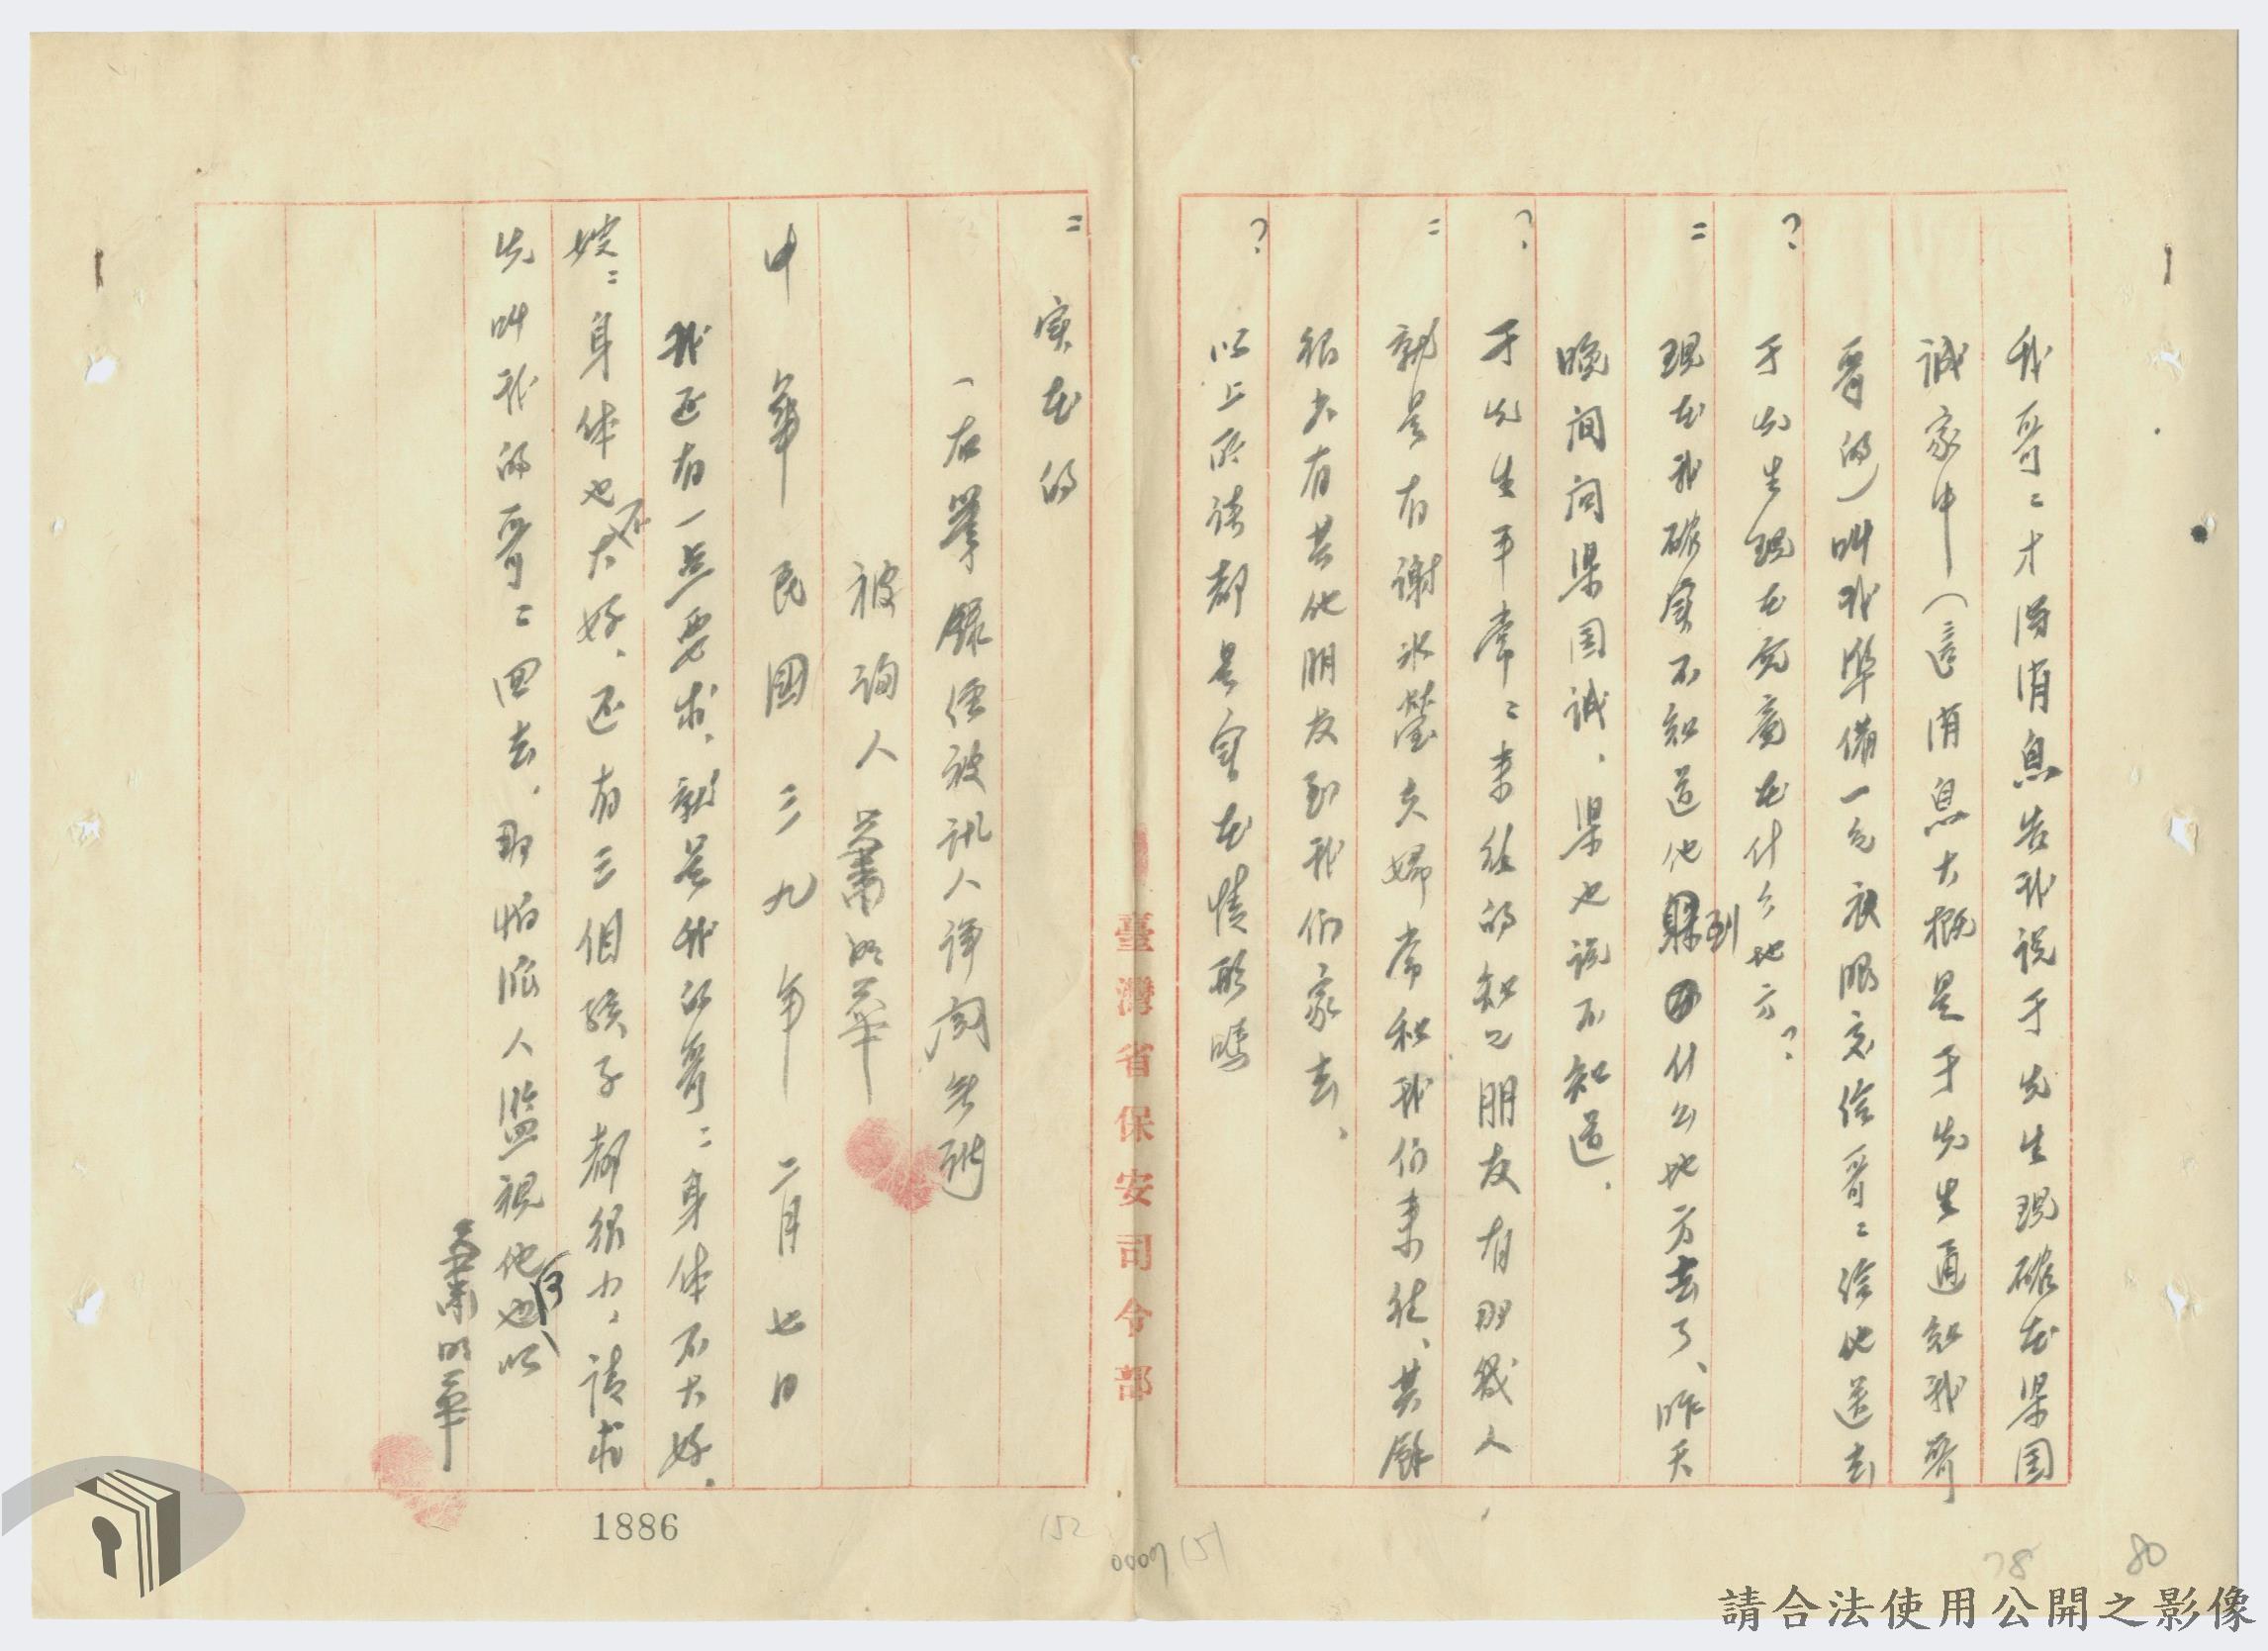 我哥〻才得消息告我说于先生現確在梁国
诚家中（這消息大概是于先生通知我哥
哥的）叫我準備一包衣服交给哥〻给他送去
？于先生現在究竟在什么地方？
＝現在我確实不知道他躲到什么地方去了、昨天
晚间问梁国诚、梁也说不知道．
？于先生平常〻来往的知己朋友有那幾人
＝就是有谢冰瑩夫婦常和我们来往、其餘
很少有其他朋友到我们家去、
？以上所談都是实在情形嗎
＝实在的
右筆錄经被訊人譯閱無訛
被詢人 蕭明華
中華民國三九年二月七日
我还有一点要求、就是我的哥〻身体不大好．
嫂〻身体也不大好、还有三個孩子都很小，请求
先叫我的哥〻回去、那怕派人監視他也可以
蕭明華
臺灣省保安司令部
1886
152
0007
151
78
80
請合法使用公開之影像